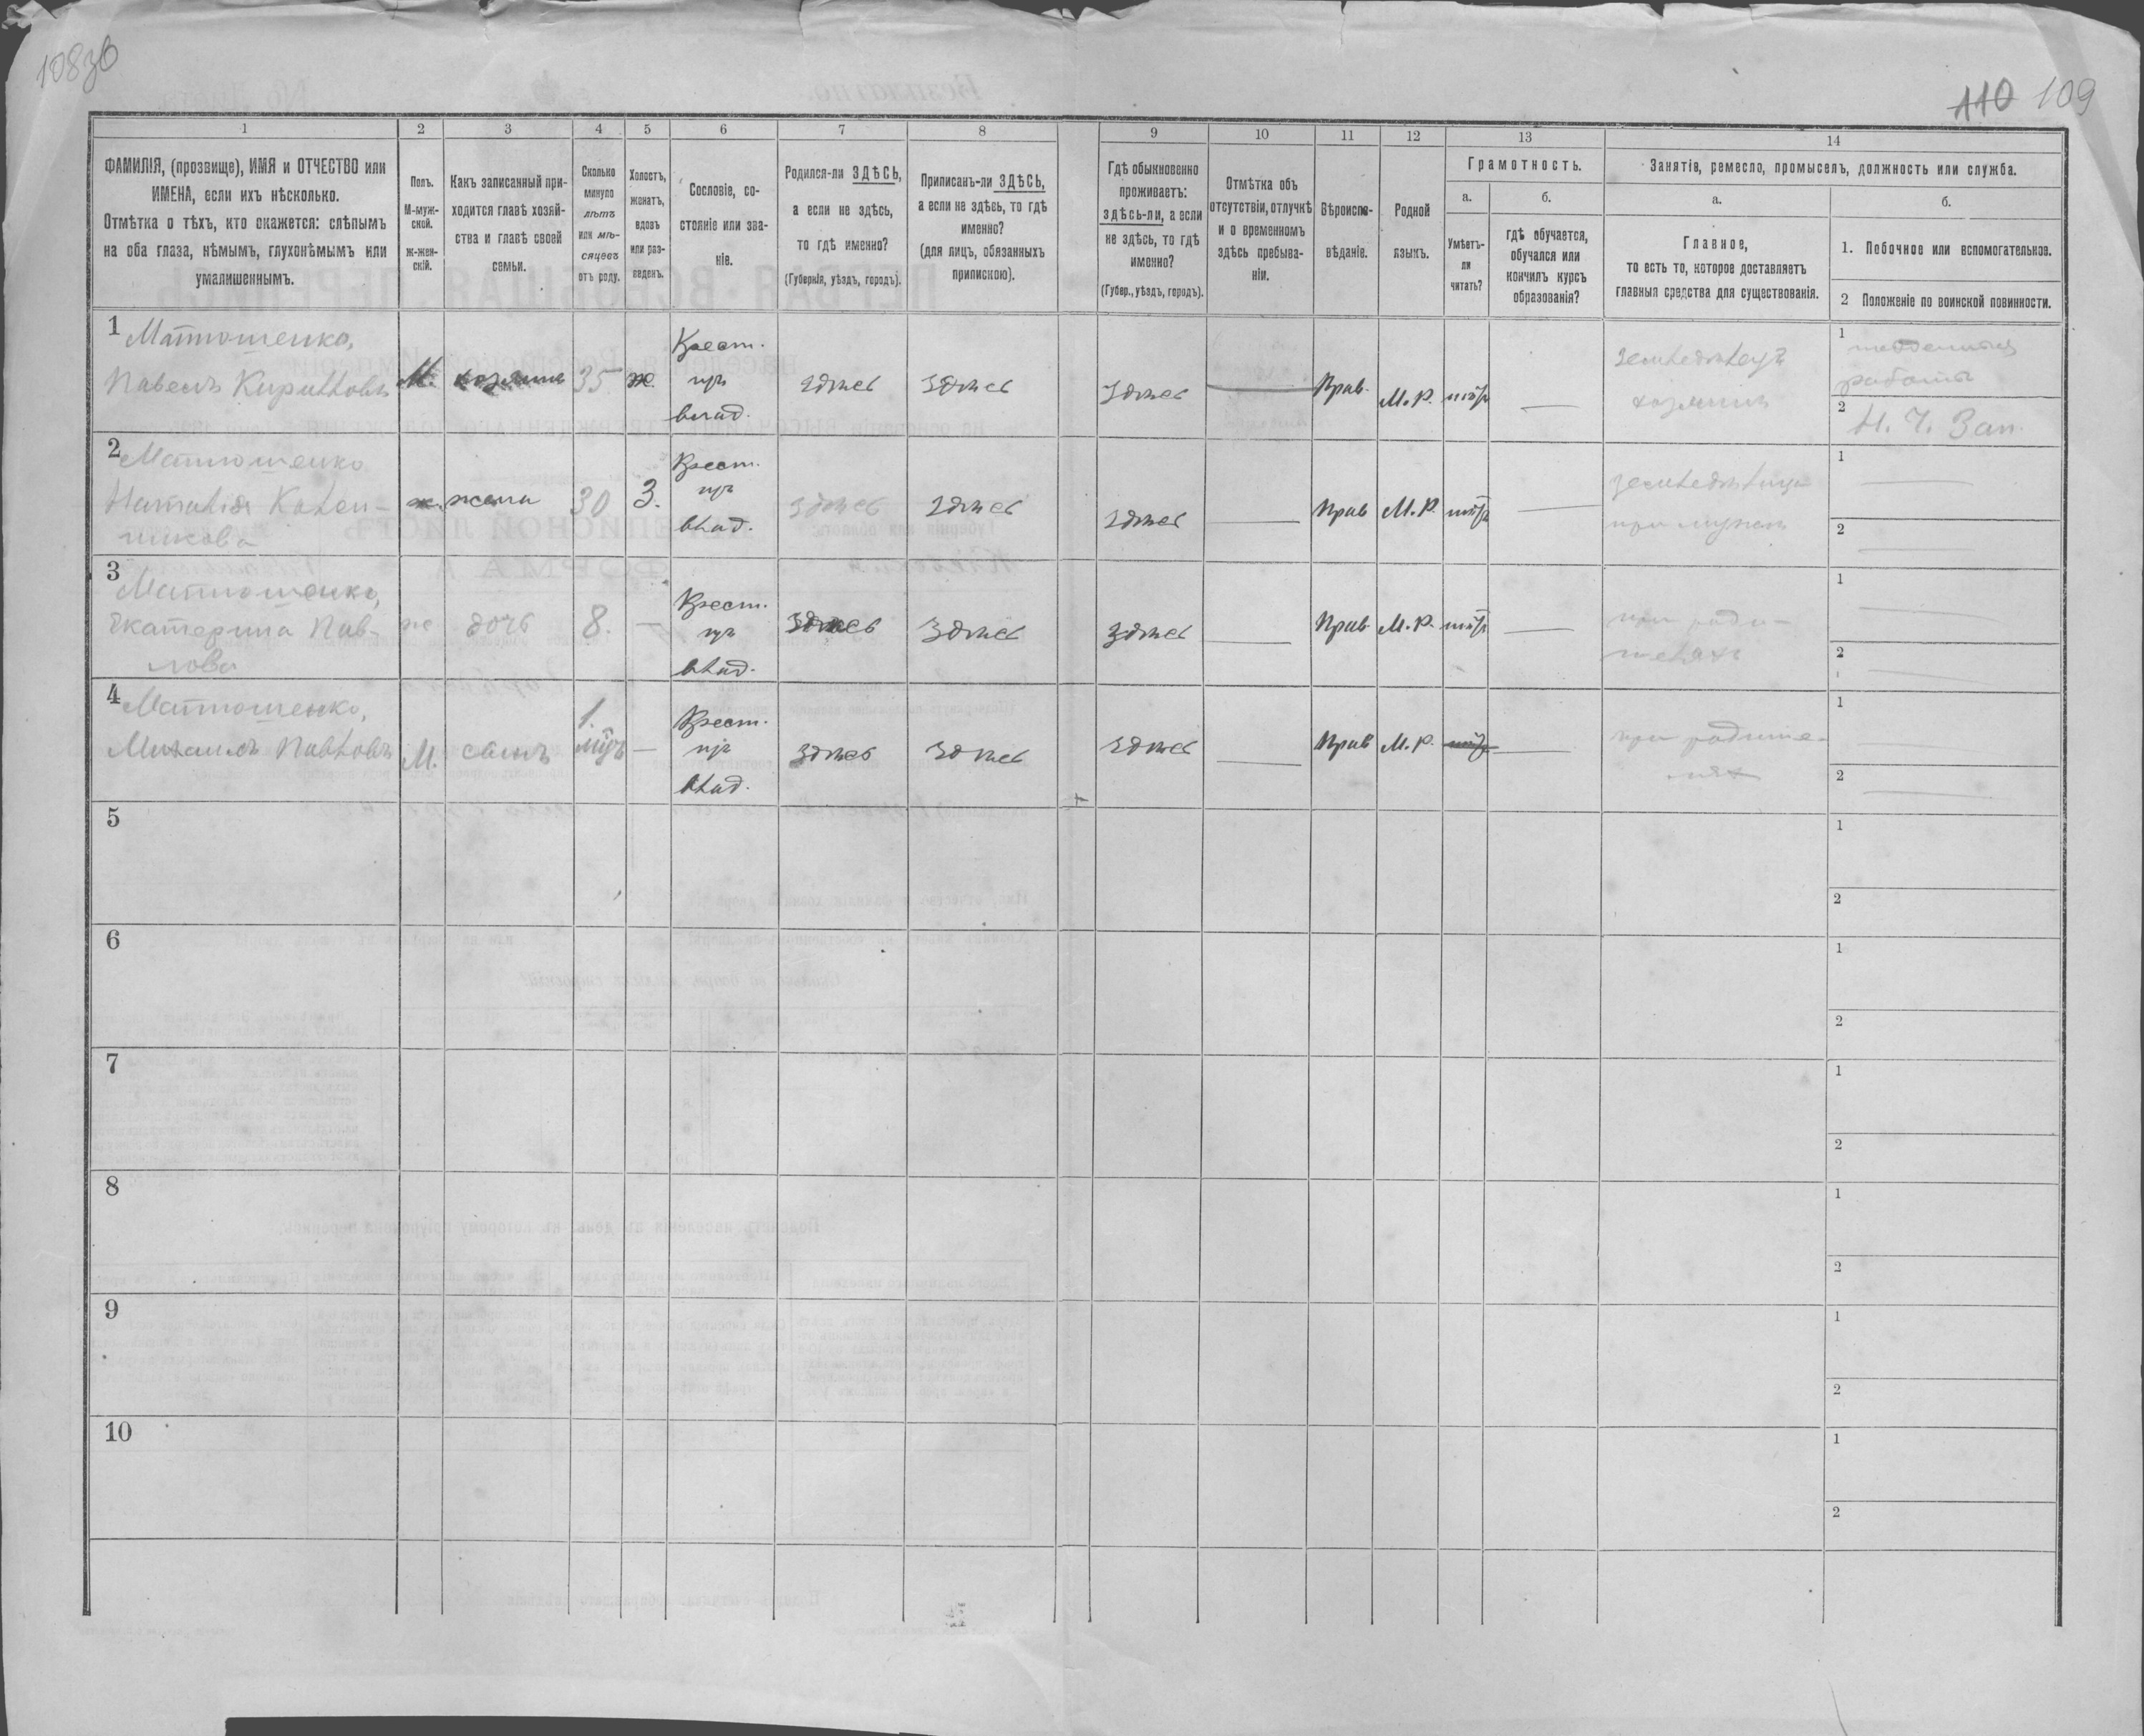 108зв
110 109
1 2 3 4 5 6 7 8 9 10 11 12 13 14
ФАМИЛІЯ, (прозвище), ИМЯ и ОТЧЕСТВО или
ИМЕНА, если ихъ нѣсколько.
Отмѣтка о тѣхъ, кто окажется: слѣпымъ
на оба глаза, нѣмымъ, глухонѣмымъ или
умалишеннымъ.
Полъ.
М-муж-
ской.
ж-жен-
скій.
Какъ записанный при-
ходится главѣ хозяй-
ства и главѣ своей
семьи.
Сколько
минуло
лѣтъ
или мѣ-
сяцевъ
отъ роду.
Холостъ,
женатъ,
вдовъ
или раз-
веденъ.
Сословіе, со-
стояніе или зва-
ніе.
Родился-ли ЗДѢСЬ,
а если не здѣсь,
то гдѣ именно?
(Губернія, уѣздъ, городъ).
Приписанъ-ли ЗДѢСЬ,
а если не здѣсь, то гдѣ
именно?
(для лицъ, обязанныхъ
припискою).
Гдѣ обыкновенно
проживаетъ:
здѣсь-ли, а если
не здѣсь, то гдѣ
именно?
(Губер., уѣздъ, городъ).
Отмѣтка объ
отсутствіи, отлучкѣ
и о временномъ
здѣсь пребыва-
ніи.
Вѣроиспо-
вѣданіе.
Родной
языкъ.
Грамотность.
а.
Умѣетъ-
ли
читать?
б.
гдѣ обучается,
обучался или
кончилъ курсъ
образованія?
Занятія, ремесло, промыселъ, должность или служба.
а.
Главное,
то есть то, которое доставляетъ
главныя средства для существованія.
б.
1. Побочное или вспомогательное.
2 Положеніе по воинской повинности.
1 Матюшенко,
Павелъ Кирилловъ
М.
хозяинъ
35
ж.
Крест.
изъ
влад.
здѣсь
здѣсь
здѣсь
Прав.
М.Р.
нѣтъ
земледѣлецъ
хозяинъ
1
поденныя
работы
2
Н. Ч. Зап.
2 Матюшенко
Наталія Колен-
никова
ж.
жена
30
З.
Крест.
изъ
влад.
здѣсь
здѣсь
здѣсь
Прав
М.Р.
нѣтъ
земледѣлица
при мужѣ
1
2
3 Матюшенко,
Екатерина Пав-
лова
ж
дочь
8.
Крест.
изъ
влад.
здѣсь
здѣсь
здѣсь
Прав.
М.Р.
нѣтъ
при роди-
теляхъ
1
2
4 Матюшенко,
Михаилъ Павловъ
М.
сынъ
1.
мѣс.
Крест.
изъ
влад.
здѣсь
здѣсь
здѣсь
Прав
М.Р.
нѣтъ
при родите-
ляхъ
1
2
5
1
2
6
1
2
7
1
2
8
1
2
9
1
2
10
1
2